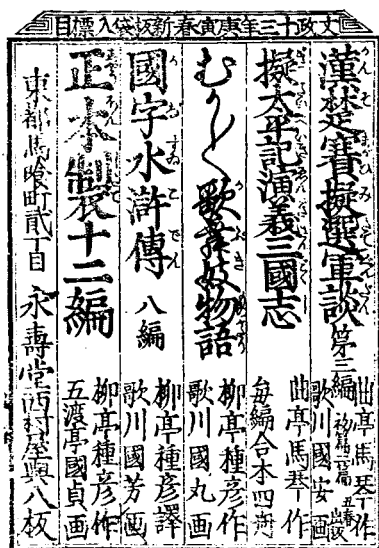 文政十三年庚寅春新板袋入標目
漢楚賽擬選軍談 第三編
曲亭馬琴作
歌川國安画
擬太平記演義三國志
曲亭馬琴作
毎編合本四冊
むかし〱歌舞妓物語
柳亭種彦作
歌川國丸画
國字水滸傳 八編
柳亭種彦譯
歌川國芳画
正本製十二編
柳亭種彦作
五渡亭國貞画
東都馬喰町貳丁目 永壽堂西村屋與八板